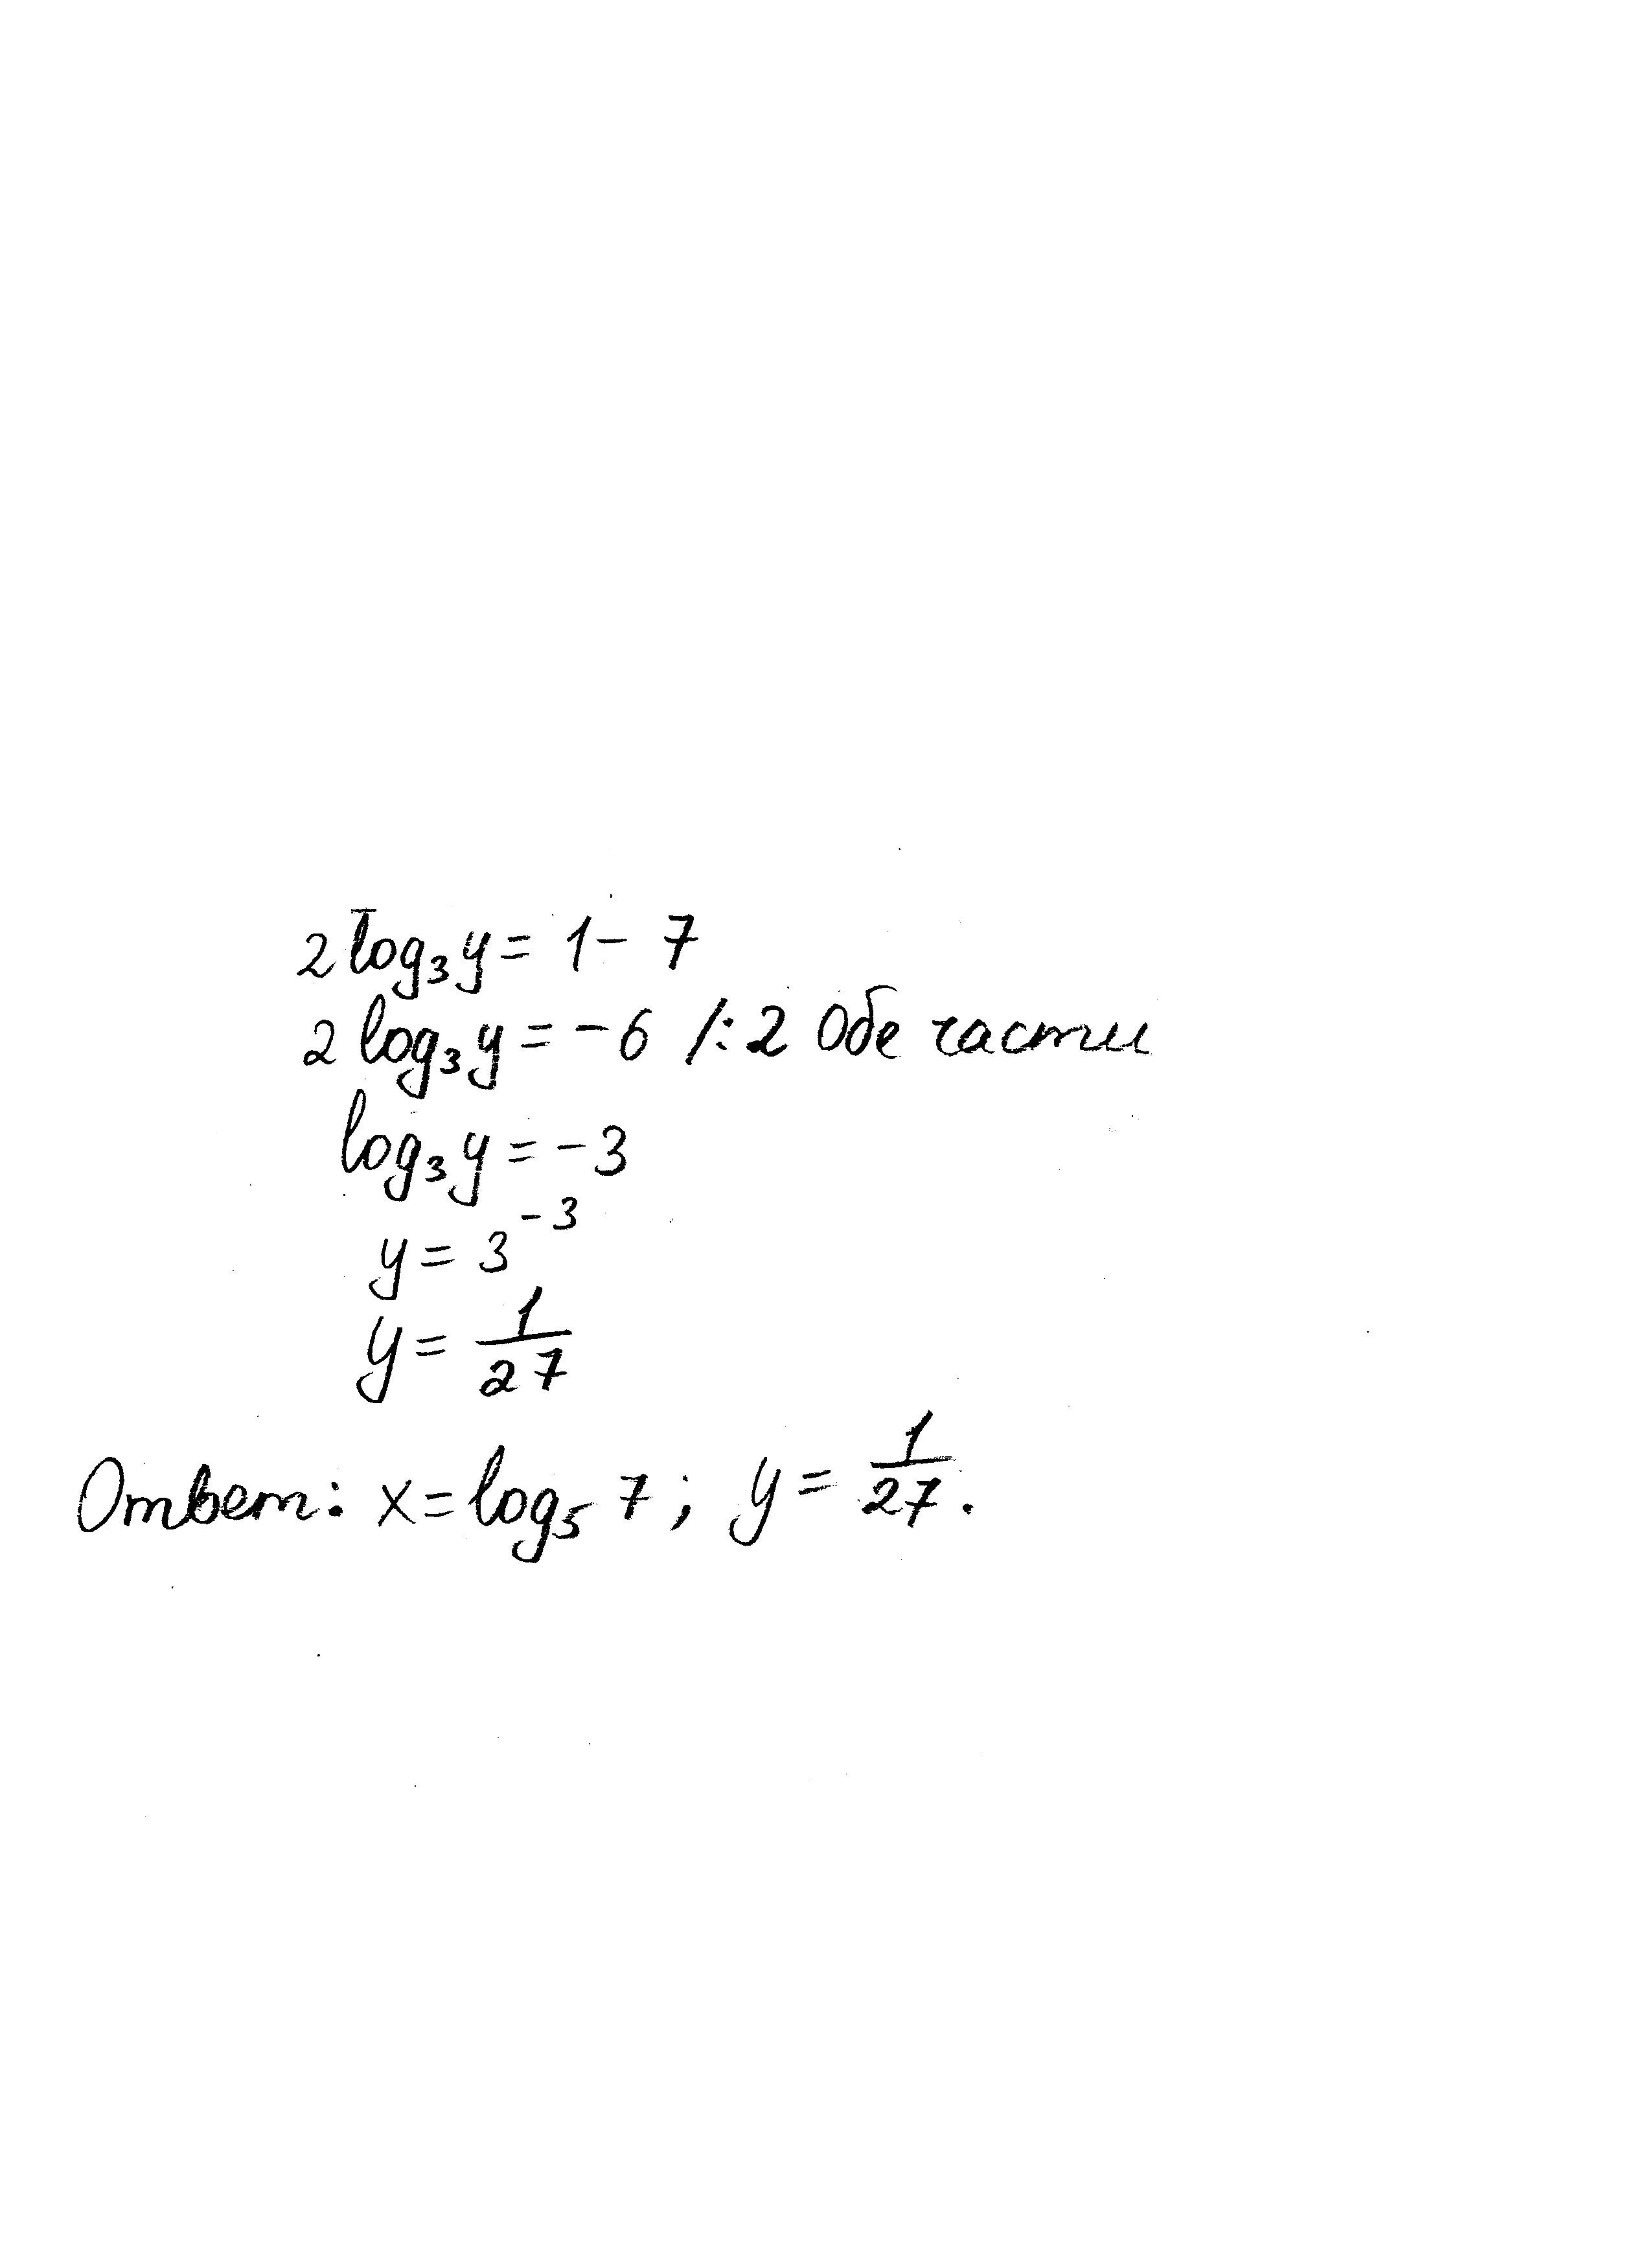 2 log₃ y = 1 - 7
2 log₃ y = -6 /:2 Обе части
log₃ y = -3
y = 3⁻³
y = 1/27
Ответ: x = log₅ 7; y = 1/27.